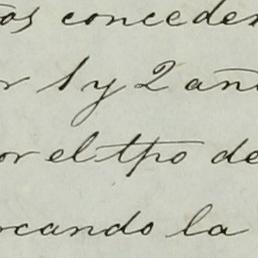 os conceder
r 1 y 2 añ
or el tpo de
rcando la